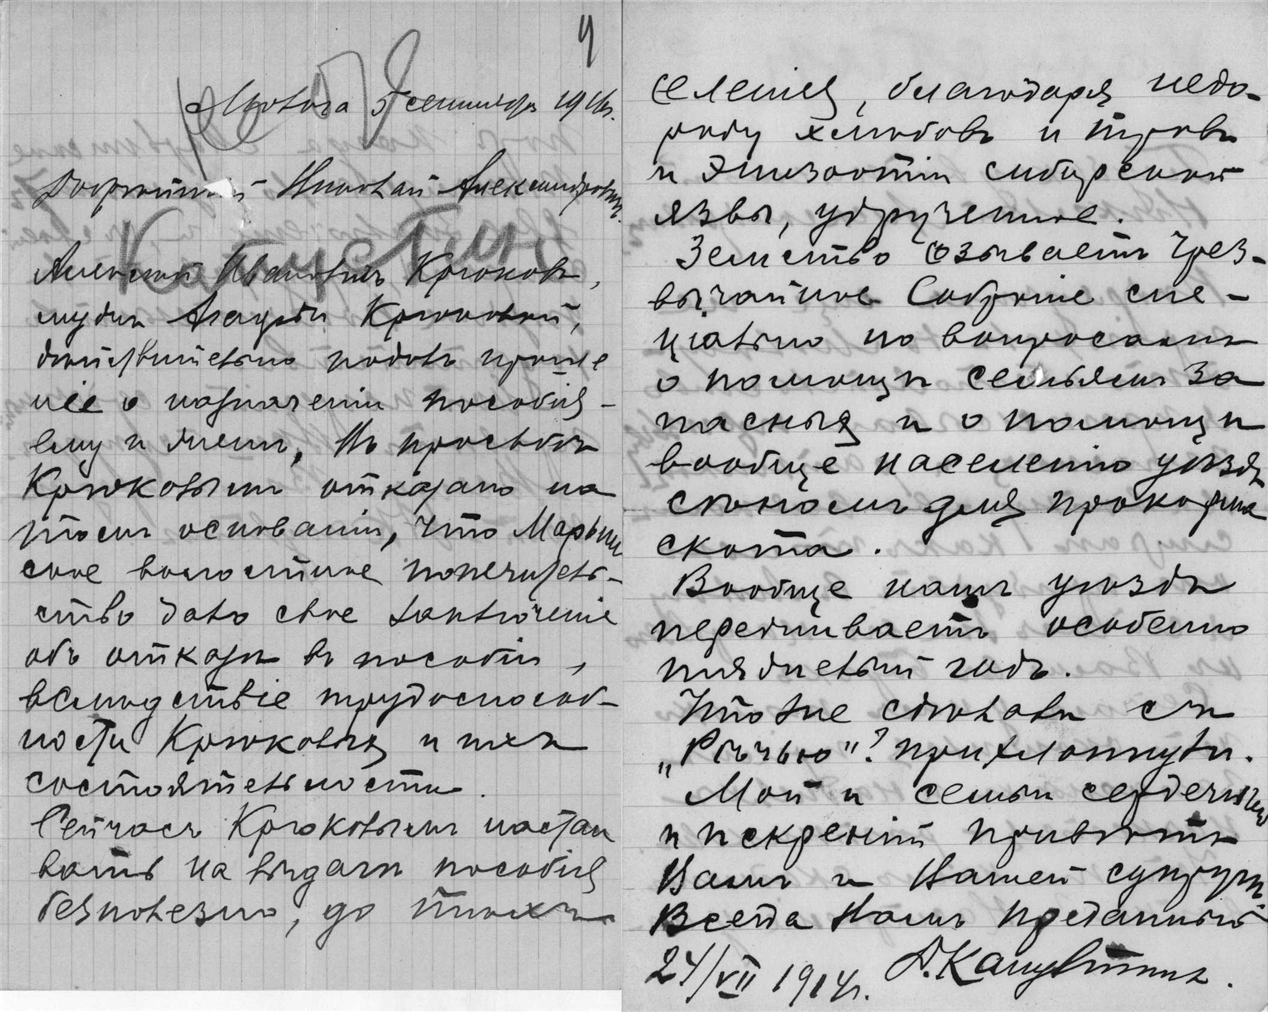 4
5 сентября 1914г.
Дорогой Николай Александрович.
Капустин
Алексей Иванович Крюковъ,
мужъ Крюковой,
действительно подавъ проше
ніе о назначеніи пособія –
ему и детямъ, Въ просьбе
Крюковымъ отказано на
томъ основаніи, что Марьин
ское волостное попечитель–
ство дало свое заключеніе
объ отказе въ пособіи,
вследствіе трудоспособ–
ности Крюковыхъ и ихъ
состоятельности.
Сейчасъ Крюковымъ настаи
вать на выдаче пособія
безполезно, до техъ
селенія, благодаря недо–
роду хлебовъ и травъ
и эпизоотіи сибирской
язвы, удрученное.
Земство созываетъ Чрез–
вычайное Собраніе спе–
ціально по вопросамъ
о помощи семьямъ за
пасныхъ и о помощи
вообще населенію уезда
сеномъ для прокорма
скота.
Вообще нашъ уездъ
переживаетъ особенно
тяжелый годъ.
Что же сделали съ
„Речью"? прихлопнули.
Мой и семьи сердечный
и искренній приветъ
Вамъ и Вашей супруге.
Всегда Вамъ преданный
24/VII 1914г. А. Капустинъ.